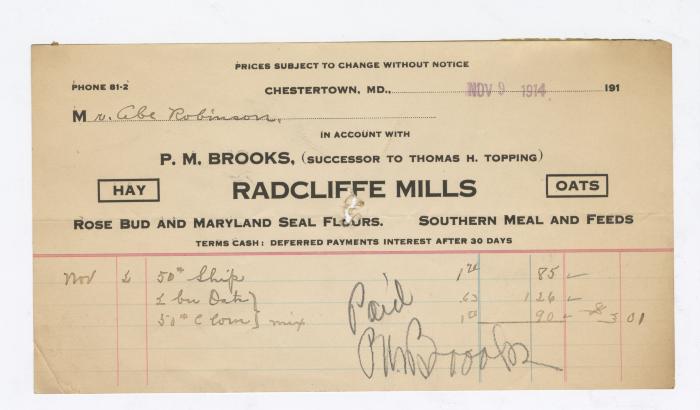 PRICES SUBJECT TO CHANGE WITHOUT NOTICE
PHONE 81-2
CHESTERTOWN, MD., NOV 9 1914 191
Mr. Abe Robinson,
IN ACCOUNT WITH
P. M. BROOKS, (SUCCESSOR TO THOMAS H. TOPPING)
HAY RADCLIFFE MILLS OATS
ROSE BUD AND MARYLAND SEAL FLOURS. SOUTHERN MEAL AND FEEDS
TERMS CASH: DEFERRED PAYMENTS INTEREST AFTER 30 DAYS
Nov 50# Ship 85
bu Oats} .63 1 26
50# C Corn} mix 90 3 01
Paid
P.M. Brooks